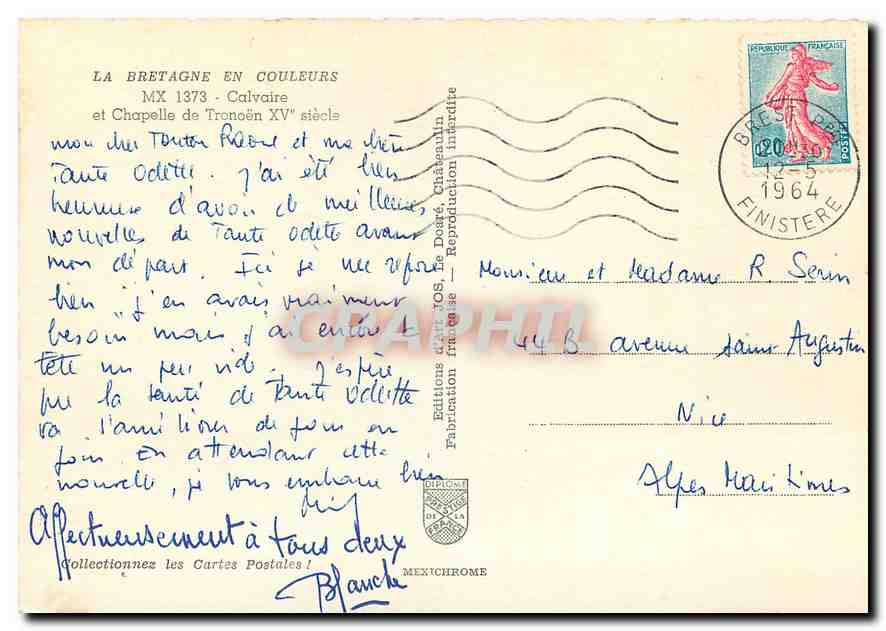 LA BRETAGNE EN COULEURS
MX 1373 - Calvaire
et Chapelle de Tronoën XVe siècle
mon cher Tonton Raoul et ma chère
Tante Odette. J'ai été bien
heureuse d'avoir de meilleures
nouvelles de Tante Odette avant
mon départ. Ici je me repose
bien j'en avais vraiment
besoin mais j'ai encore la
tête un peu vide. J'espère
que la santé de Tante Odette
va s'améliorer de jour en
jour. En attendant cette
nouvelle, je vous embrasse bien
Affectueusement à tous deux
Blanche
Collectionnez les Cartes Postales !
Editions d'Art JOS, Le Doaré, Châteaulin
Fabrication française — Reproduction interdite
DIPLOME
PRESTIGE
DE LA
FRANCE
MEXICHROME
REPUBLIQUE FRANÇAISE
0,20
POSTES
BREST PPAL
12-5
1964
FINISTERE
Monsieur et Madame R. Serin
44 B avenue Saint Augustin
Nice
Alpes Maritimes
CPAPHIL